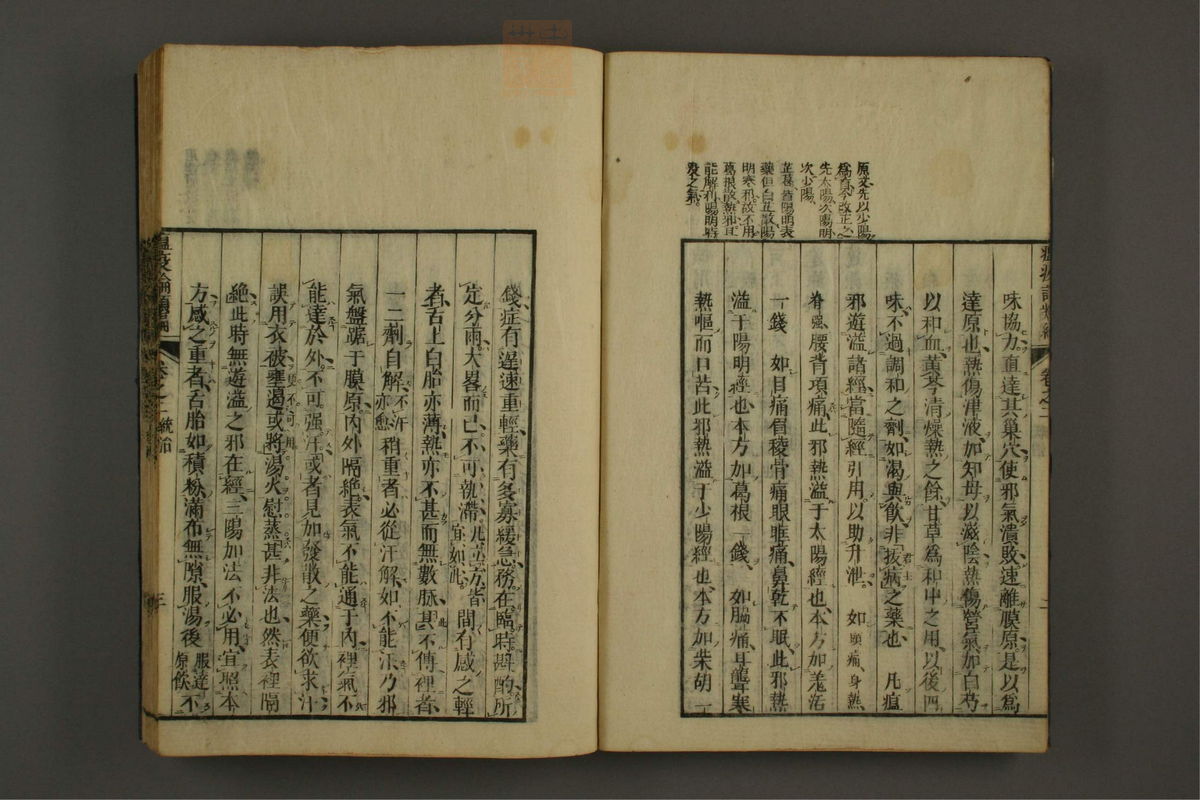 原文先以少陽
爲首今改正之
先太陽次陽明
次少陽
芷葛皆陽明表
藥但白芷散陽
明寒邪故不用
葛根散熱邪且
能解利陽明時
疫之氣
味協力直達其巢穴使邪氣潰敗速離膜原是以爲
達原也熱傷津液加知母以滋陰熱傷營氣加白芍
以和血黃芩清燥熱之餘甘草爲和中之用以後四
味不過調和之劑如渴與飮非拔病之藥也 凡瘟
邪遊溢諸經當隨經引用以助升泄 如頭痛身熱
脊强腰背項痛此邪熱溢于太陽經也本方加羗活
一錢 如目痛眉稜骨痛眼眶痛鼻乾不眠此邪熱
溢于陽明經也本方加葛根一錢 如脇痛耳聾寒
熱嘔而口苦此邪熱溢于少陽經也本方加柴胡一
卷之二
錢症有遲速重輕藥有多寡緩急務在臨時斟酌所
定分兩大畧而已不可執滯凡立方皆宜如此間有感之輕
者舌上白胎亦薄熱亦不甚而無數脉其不傳裡者
一二劑自解不汗亦愈稍重者必從汗解如不能汗乃邪
氣盤踞于膜原內外隔絶表氣不能通于內裡氣不
能達於外不可强汗或者見加發散之藥便欲求汗
誤用衣被壅遏或將湯火慰蒸甚非法也然表裡隔
絶此時無遊溢之邪在經三陽加法不必用宜照本
方感之重者舌胎如積粉滿布無隙服湯後服達原飮不
瘟疫論類編
卷之二 統治
三